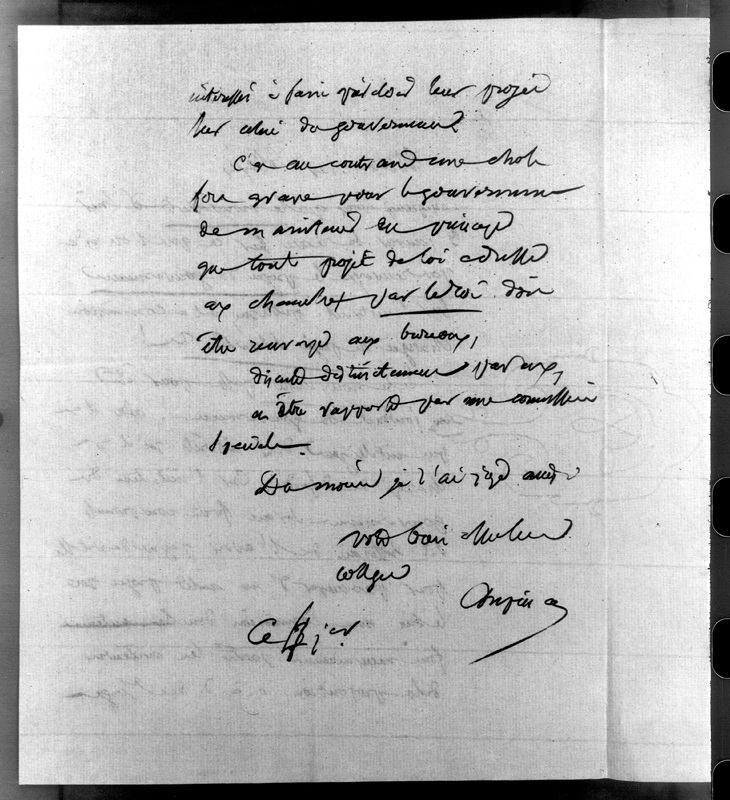 intéressés à faire prévaloir leur projet
sur celui du gouvernement
C'est au contraire une chose
fort grave pour le gouvernement
de maintenir en principe
que tout projet de loi adressé
aux chambres par le Roi doit
être renvoyé aux bureaux,
discuté distinctement par eux,
et être rapporté par une commission
spéciale.
Du moins je l'ai jugé ainsi
votre bien affectionné
collègue
Dupin a
Ce